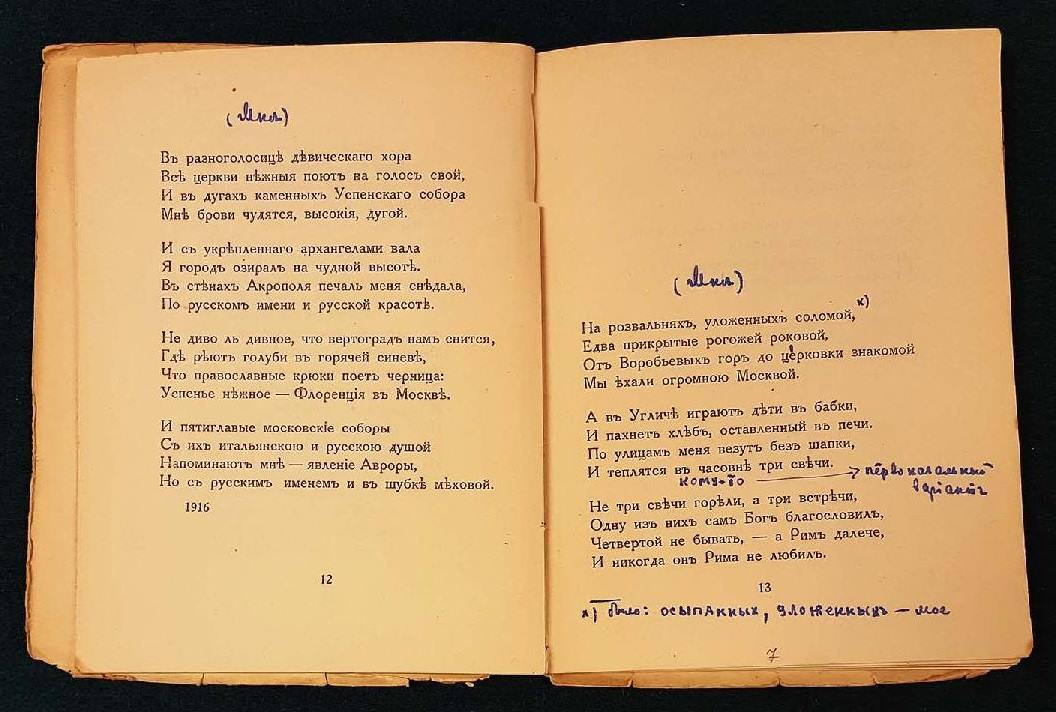 (Мнѣ)
Въ разноголосицѣ дѣвическаго хора
Всѣ церкви нѣжныя поютъ на голосъ свой,
И въ дугахъ каменныхъ Успенскаго собора
Мнѣ брови чудятся, высокія, дугой.
И съ укрѣпленнаго архангелами вала
Я городъ озиралъ на чудной высотѣ.
Въ стѣнахъ Акрополя печаль меня снѣдала,
По русскомъ имени и русской красотѣ.
Не диво ль дивное, что вертоградъ намъ снится,
Гдѣ рѣютъ голуби въ горячей синевѣ,
Что православные крюки поетъ черница:
Успенье нѣжное — Флоренція въ Москвѣ.
И пятиглавые московскіе соборы
Съ ихъ итальянскою и русскою душой
Напоминаютъ мнѣ — явленіе Авроры,
Но съ русскимъ именемъ и въ шубкѣ мѣховой.
1916
12
(Мнѣ)
На розвальняхъ, уложенныхъ соломой, х)
Едва прикрытые рогожей роковой,
Отъ Воробьевыхъ горъ до церковки знакомой
Мы ѣхали огромною Москвой.
А въ Угличѣ играютъ дѣти въ бабки,
И пахнетъ хлѣбъ, оставленный въ печи.
По улицамъ меня везутъ безъ шапки,
И теплятся въ часовнѣ три свѣчи.
кому-то → первоначальный
варіантъ
Не три свѣчи горѣли, а три встрѣчи,
Одну изъ нихъ самъ Богъ благословилъ,
Четвертой не бывать, — а Римъ далече,
И никогда онъ Рима не любилъ.
13
х) было: осыпанных, уложенныхъ — мое
7